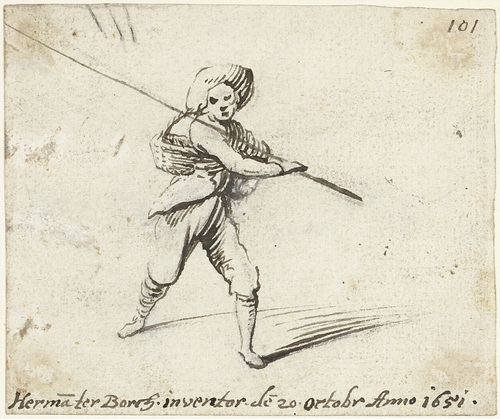 101
Hermā ter Borch. inventor. dē 20. octobr Anno 1651.